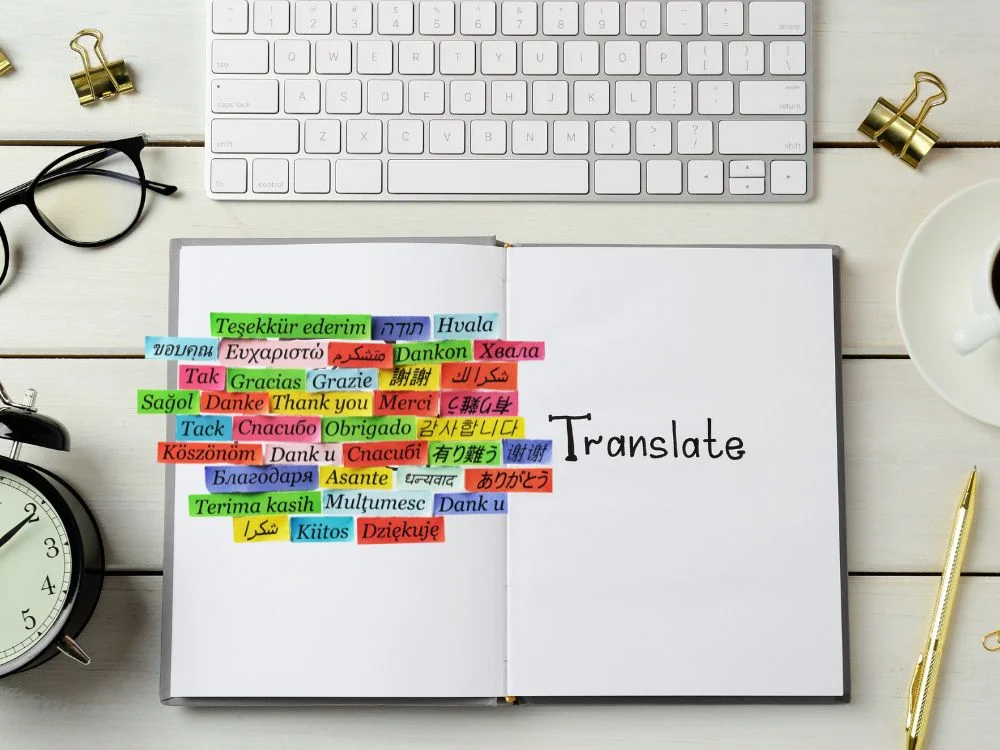 ~ ! @ # $ % ^ & * ( ) _ +
` 1 2 3 4 5 6 7 8 9 0 - = delete
tab Q W E R T Y U I O P { [ } ] | \
caps lock A S D F G H J K L : ; " ' enter return
shift Z X C V B N M < , > . ? / shift
fn control
Teşekkür ederim תודה Hvala
ขอบคุณ Ευχαριστώ متشکرم Dankon Хвала
Tak Gracias Grazie 謝謝 شكرا لك
Sağol Danke Thank you Merci
Tack Спасибо Obrigado 감사합니다
Köszönöm Dank u Спасибі 有り難う 谢谢
Благодаря Asante धन्यवाद ありがとう
Terima kasih Mulţumesc Dank u
شكرا Kiitos Dziękuję
Translate
2
3
4
5